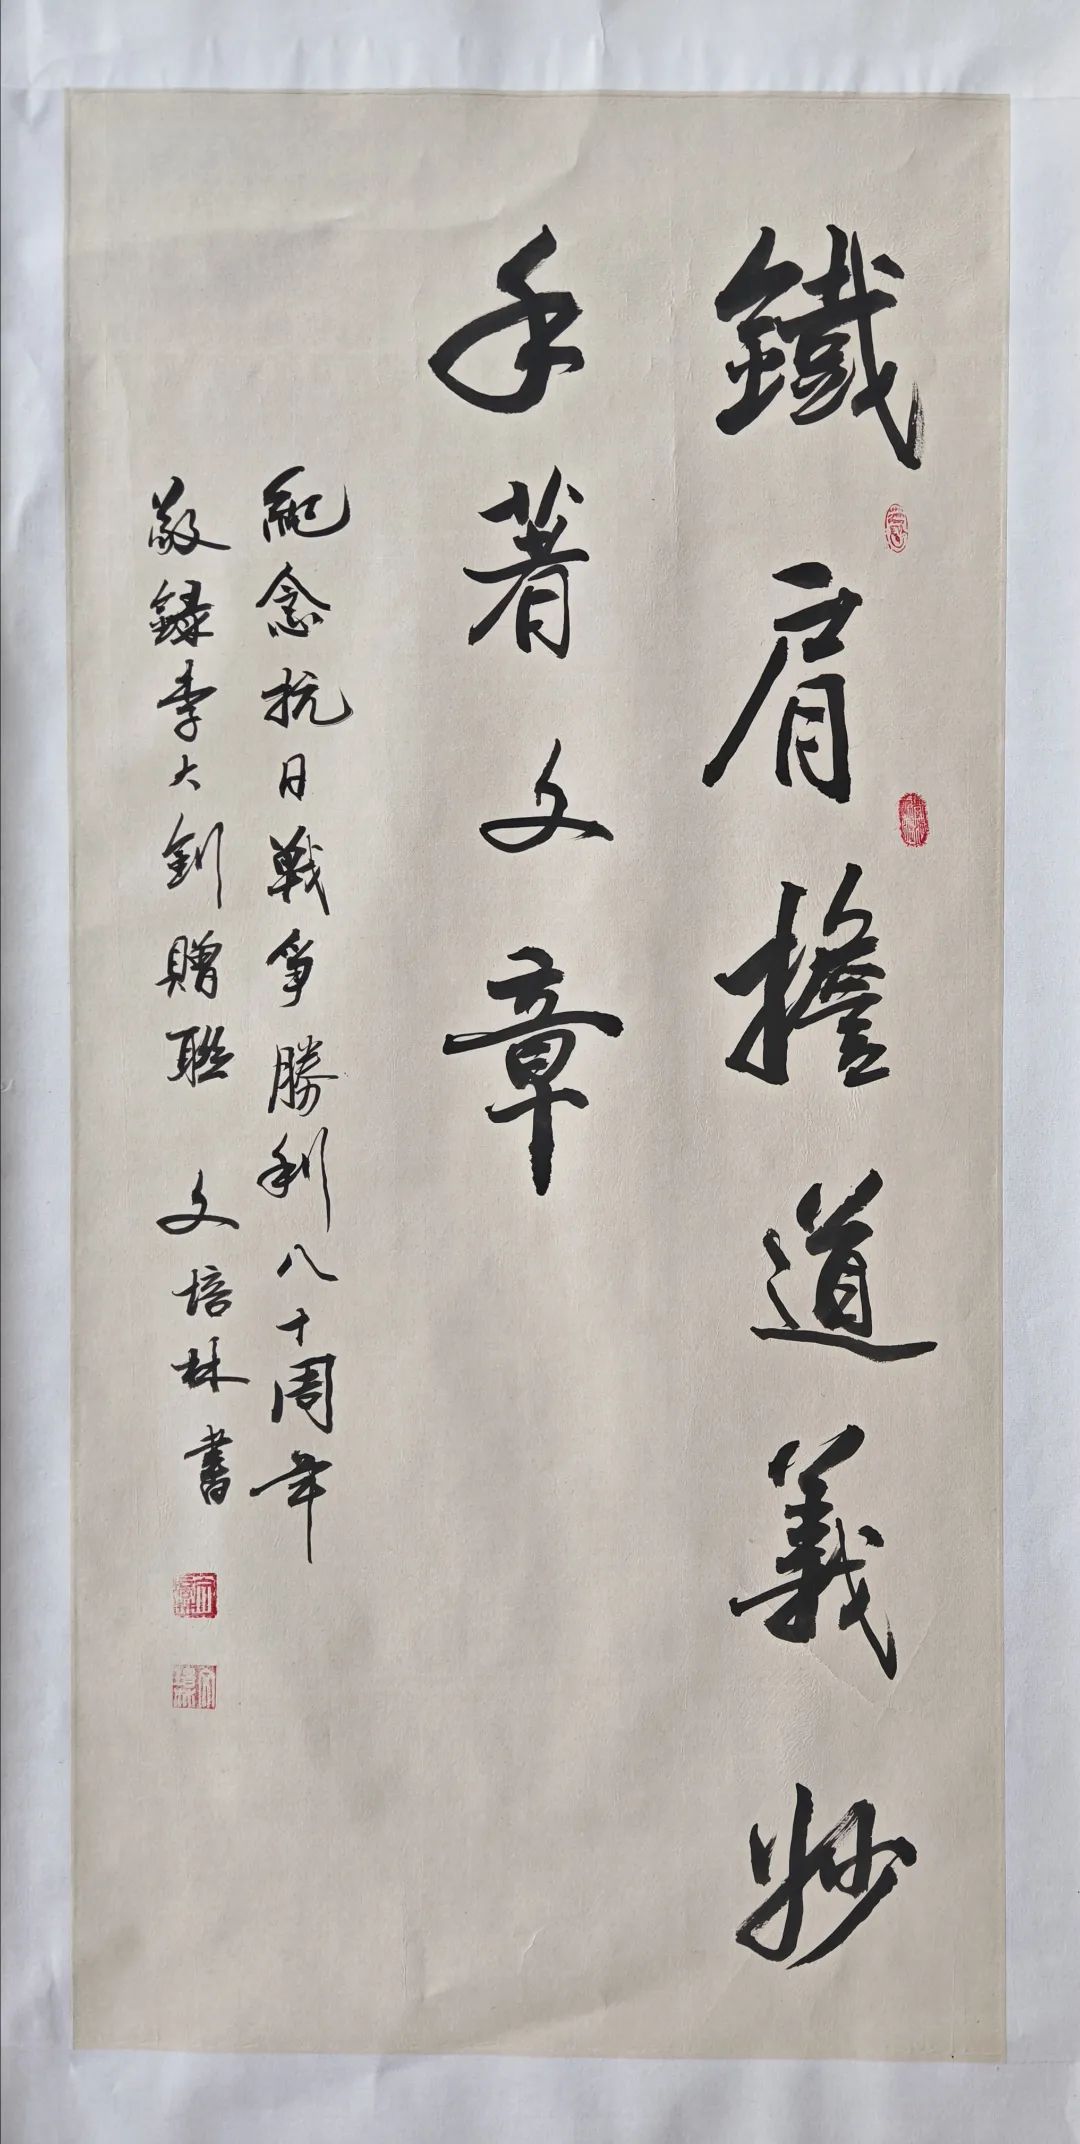 鐵肩擔道義妙
手著文章
紀念抗日戰爭勝利八十周年
敬録李大釗贈聯 文培林書